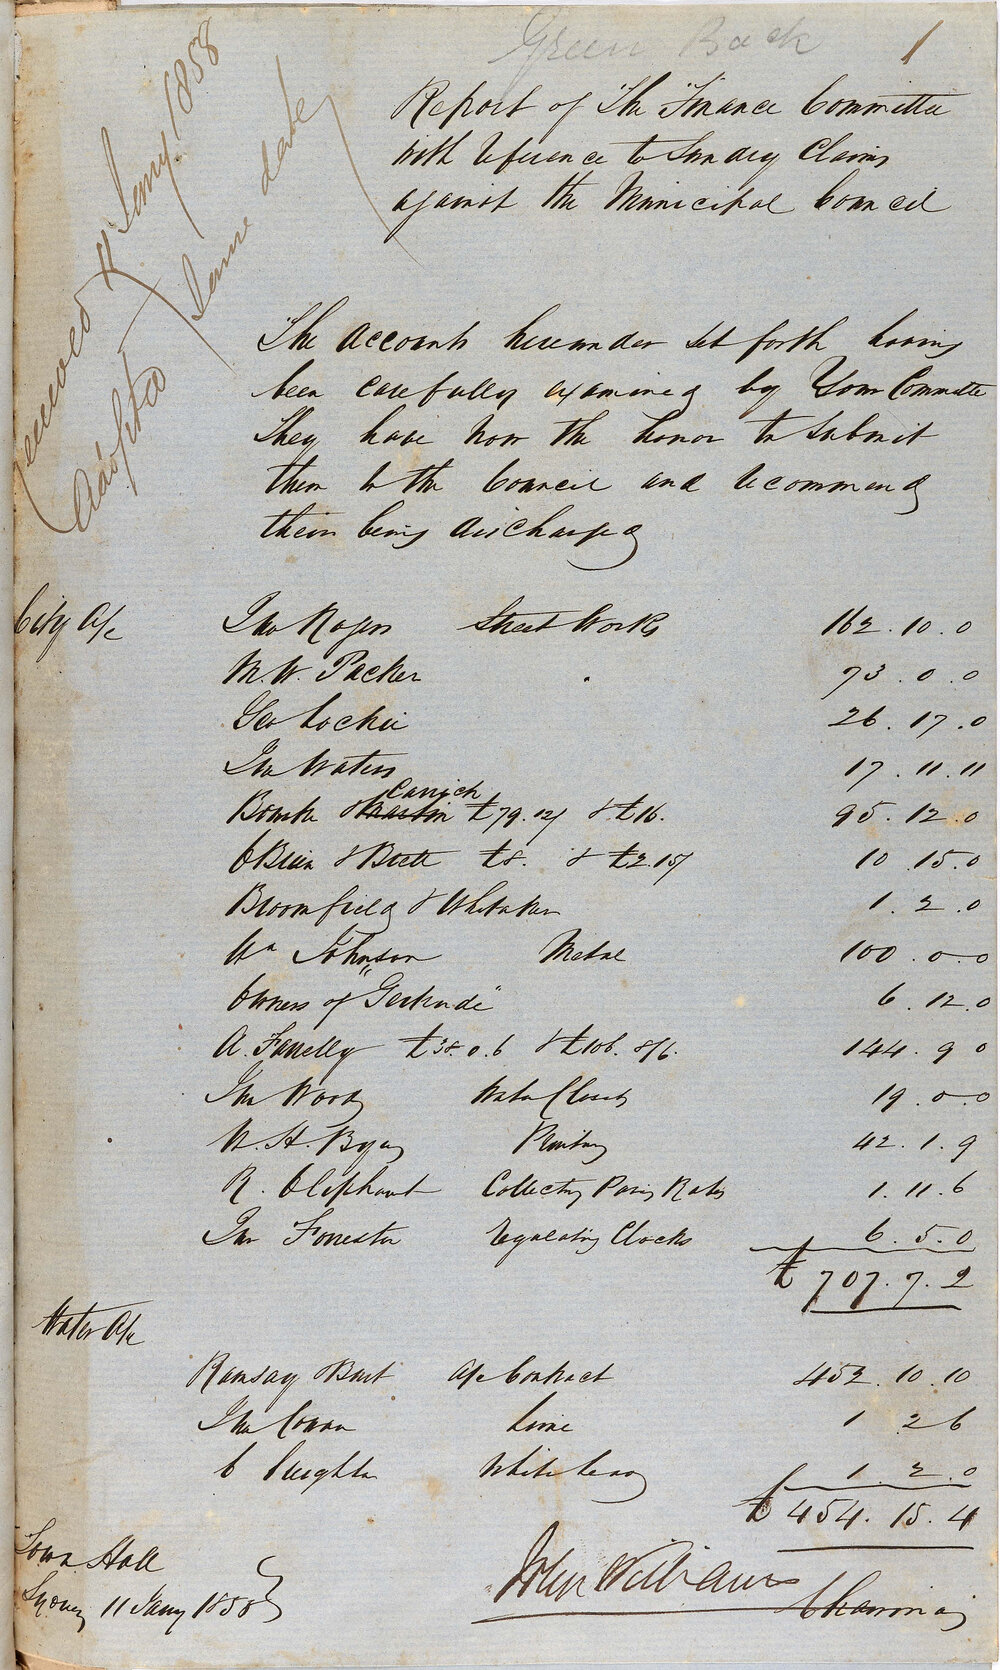 Green Back
1
Received 11 Jany. 1858
Adopted same date
Report of The Finance Committee
with reference to Sundry Claims
against the Municipal Council
The Accounts hereunder set forth having
been carefully examined by Your Committee
They have now the honor to submit
them to the Council and recommend
their being discharged
City A/c
Jno Rogers Street Works 162.10.0
M.W. Packer 73.0.0
Geo Lockie 26.17.0
Jno Waters 17.11.11
Bourke & Martin Carrick £79.12/ & £16. 95.12.0
OBrien & £8. & £2.15/ 10.15.0
Bloomfield & Whitaker 1.2.0
Wm Johnson Metal 100.0.0
Owners of "Gertrude" 6.12.0
A. Fanelly £38.0.6 & £106.8/6. 144.9.0
Jno Wood Water Closets 19.0.0
W.H. Byas Printing 42.1.9
R. Oliphant Collecting Paving Rates 1.11.6
Jas Forrester Regulating Clocks 6.5.0
£707.7.2
Water A/c
Ramsay & Burt A/c Contract 452.10.10
Jno Cowan Lime 1 2 6
C Creighton White 1.2.0
£454.15.4
Town Hall
Sydney 11 Jany 1858
John Williams
Chairman